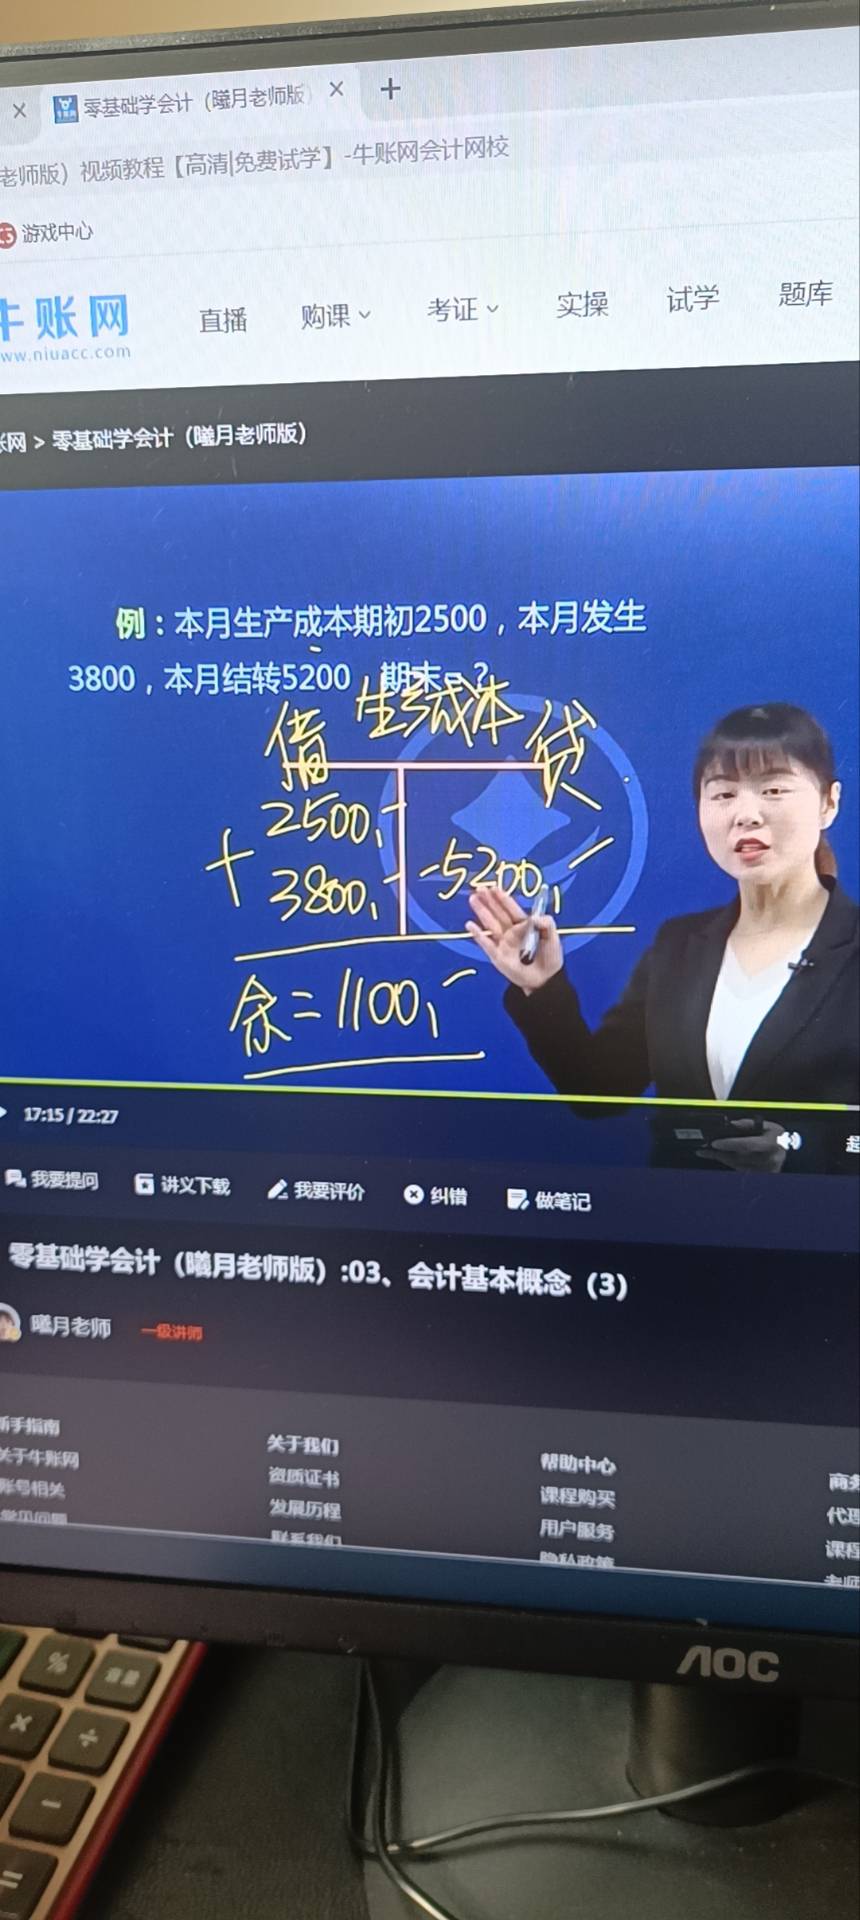 零基础学会计（曦月老师版）
老师版）视频教程【高清|免费试学】-牛账网会计网校
游戏中心
牛账网
www.niuacc.com
直播 购课 考证 实操 试学 题库
账网 > 零基础学会计（曦月老师版）
例：本月生产成本期初2500，本月发生
3800，本月结转5200 期末=？
借 生产成本 贷
2500,-
+ 3800,- -5200,-
余=1100,-
17:15 / 22:27
我要提问 讲义下载 我要评价 纠错 做笔记
零基础学会计（曦月老师版）:03、会计基本概念（3）
曦月老师 一级讲师
新手指南 关于我们 帮助中心 商务
关于牛账网 资质证书 课程购买 代理
账号相关 发展历程 用户服务 课程
常见问题 联系我们 隐私政策 老师
AOC
%
×
÷
−
=